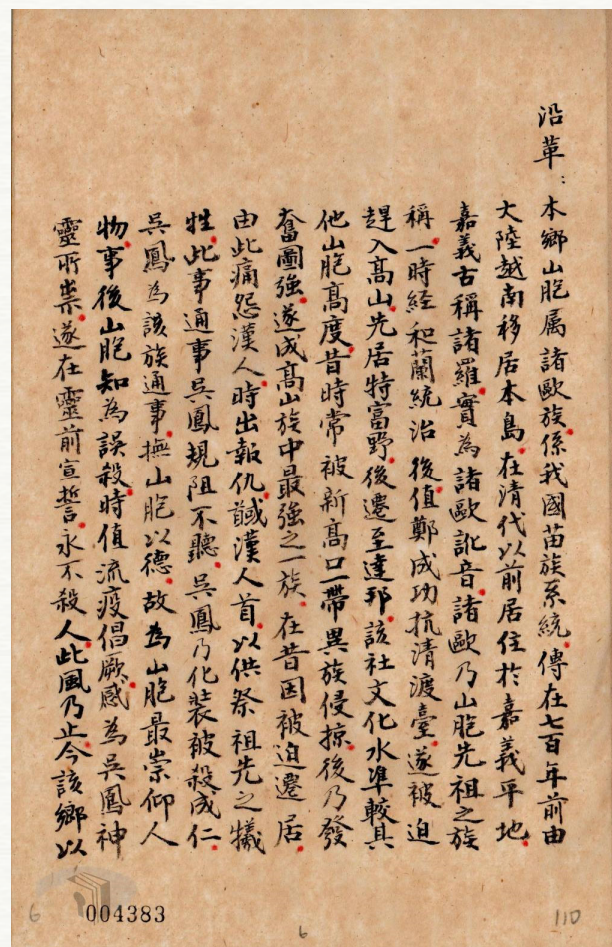 沿革：本鄉山胞属諸歐族係我國苗族系統傳在七百年前由
大陸越南移居本島在清代以前居住於嘉義平地
嘉義古稱諸羅實為諸歐訛音諸歐乃山胞先祖之族
稱一時経和蘭統治後值鄭成功抗清渡臺遂被迫
趕入高山先居特富野後遷至達邦該社文化水準較其
他山胞高度昔時常被新高口一帶異族侵掠後乃發
奮圖強遂成高山族中最強之一族在昔因被迫遷居
由此痛怨漢人時出報仇馘漢人首以供祭祖先之犧
牲此事通事吳鳳規阻不聽吳鳳乃化裝被殺成仁
吳鳳為該族通事撫山胞以德故為山胞最崇仰人
物事後山胞知為誤殺時值流疫倡厥感為吳鳳神
靈所祟遂在靈前宣誓永不殺人此風乃止今該鄉以
004383
6
6
110